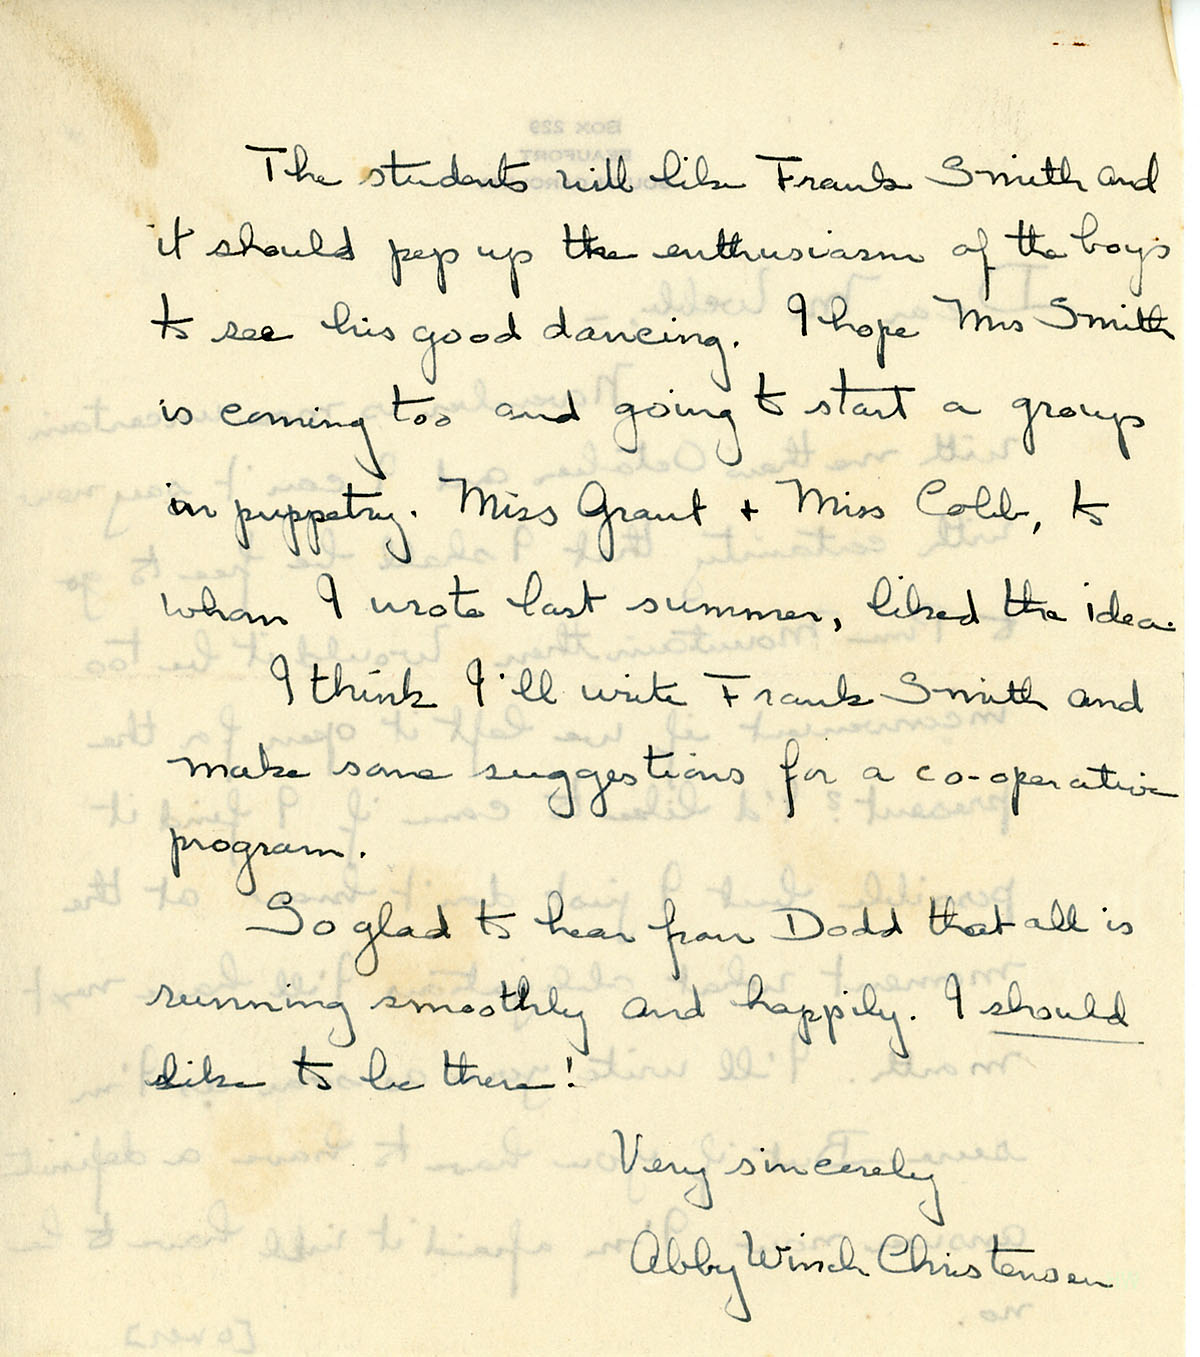 The students will like Frank Smith and
it should pep up the enthusiasm of the boys
to see his good dancing. I hope Mrs Smith
is coming too and going to start a group
in puppetry. Miss Grant + Miss Cobb, to
whom I wrote last summer, liked the idea.
I think I'll write Frank Smith and
make some suggestions for a co-operative
program.
So glad to hear from Dodd that all is
running smoothly and happily. I should
like to be there!
Very sincerely
Abby Winch Christensen